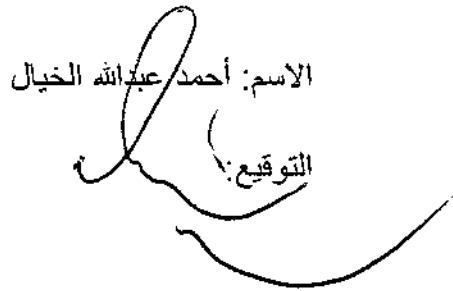 الاسم: أحمد عبدالله الخيال
التوقيع: